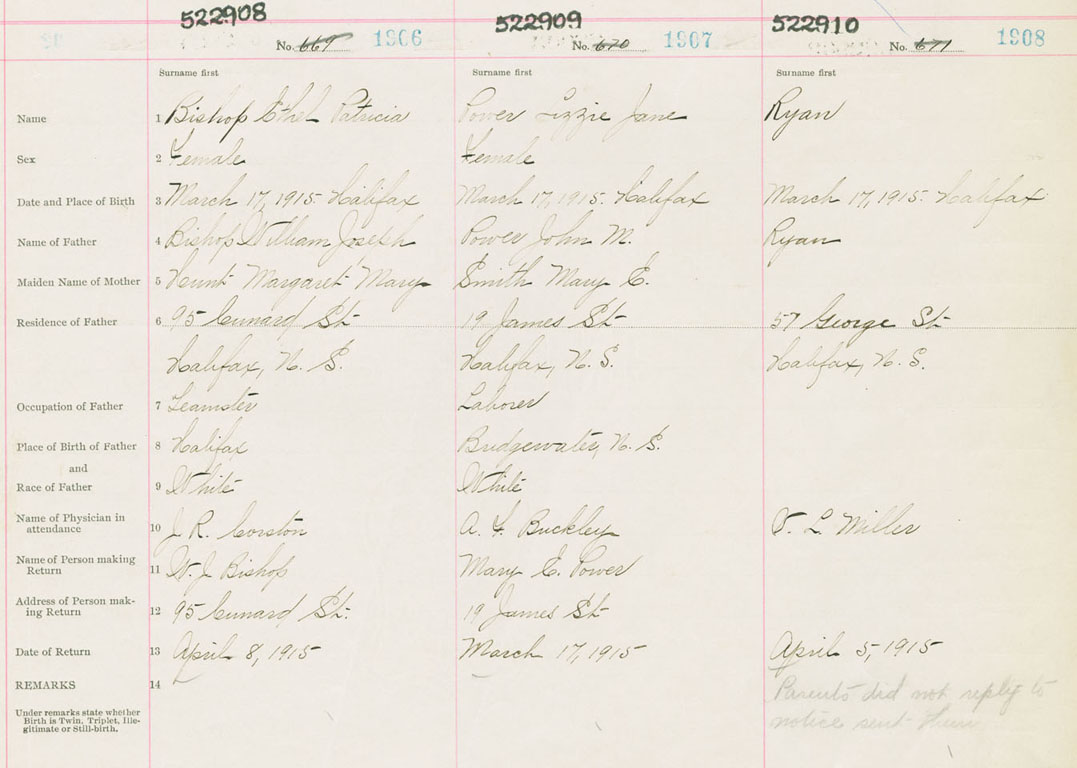 522908 522909 522910
No. 669 1906 No. 670 1907 No. 671 1908
Surname first Surname first Surname first
Name 1 Bishop Ethel Patricia Power Lizzie Jane Ryan
Sex 2 Female Female
Date and Place of Birth 3 March 17, 1915. Halifax March 17, 1915. Halifax March 17, 1915. Halifax
Name of Father 4 Bishop William Joseph Power John M. Ryan
Maiden Name of Mother 5 Hunt Margaret Mary Smith Mary E.
Residence of Father 6 95 Cunard St. 19 James St 57 George St.
Halifax, N. S. Halifax, N. S. Halifax, N. S.
Occupation of Father 7 Teamster Laborer
Place of Birth of Father 8 Halifax Bridgewater, N. S.
and
Race of Father 9 White White
Name of Physician in
attendance 10 J. R. Corston A. F. Buckley T. L. Miller
Name of Person making
Return 11 W. J. Bishop Mary E. Power
Address of Person mak-
ing Return 12 95 Cunard St. 19 James St
Date of Return 13 April 8, 1915 March 17, 1915 April 5, 1915
REMARKS 14 Parents did not reply to
notice sent them
Under remarks state whether
Birth is Twin, Triplet, Ille-
gitimate or Still-birth.